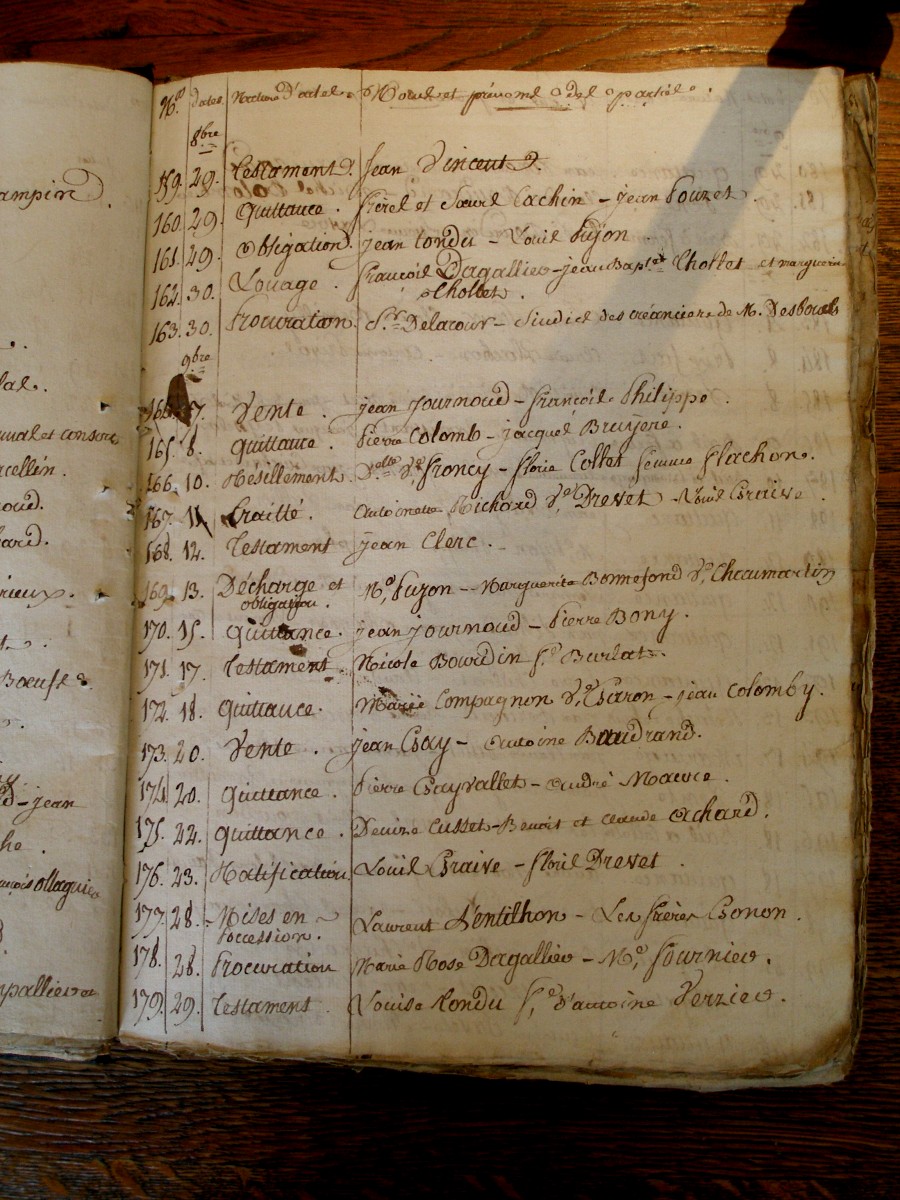 ampin.
lal.
et consors
rcellin.
noud.
hard.
rieux.
Boeuf
d-jean
he.
ollagnier
mpallier
N.os dates Nature d'actes Noms et prénoms des parties.
8bre
159. 29. Testament. jean Vincent.
160. 29. quittance. frerel et Soeurs Cachin - jean Pouzet.
161. 29. obligation. jean Condu - Louis Pujon.
162. 30. Louage. françois Dagallier - jean Bapte. Chollet et marguerite
Chollet.
163. 30. Procuration. Sr. Delacour - Sindic des créanciers de M. Desbouels
9bre
164. 7. Vente. jean Journoud - françois Philippe.
165. 8. quittance. Pierre Colomb - jacques Bruyere.
166. 10. Résiliement. Delle Ve. francy - florie Collet femme flachon.
167. 11. Traitté. antoinette Richard Ve. Drevet - Louis Graive.
168. 12. Testament jean Clerc.
169. 13. Décharge et Me. Pujon - Marguerite Bonnefond Ve. Chaumartin
obligation.
170. 15. quittance. jean journoud - Pierre Bony.
171. 17. Testament. Nicole Bourdin fe. Burlat.
172. 18. quittance. Marie Compagnon Ve. Garon - jean Colomby.
173. 20. Vente. jean Gay - antoine Baudrand.
174. 20. quittance. Pierre Gayvallet - andré Maurice.
175. 22. quittance. Denize Cusset - Benoit et claude achard.
176. 23. Notification Louis Graive - floris Drevet.
177. 28. Mises en Laurent Dentilhon - Les frères Gonon.
possession.
178. 28. Procuration Marie Rose Dagallier - Me. fournier.
179. 29. Testament. Louise Condu fe. d'antoine Verzier.